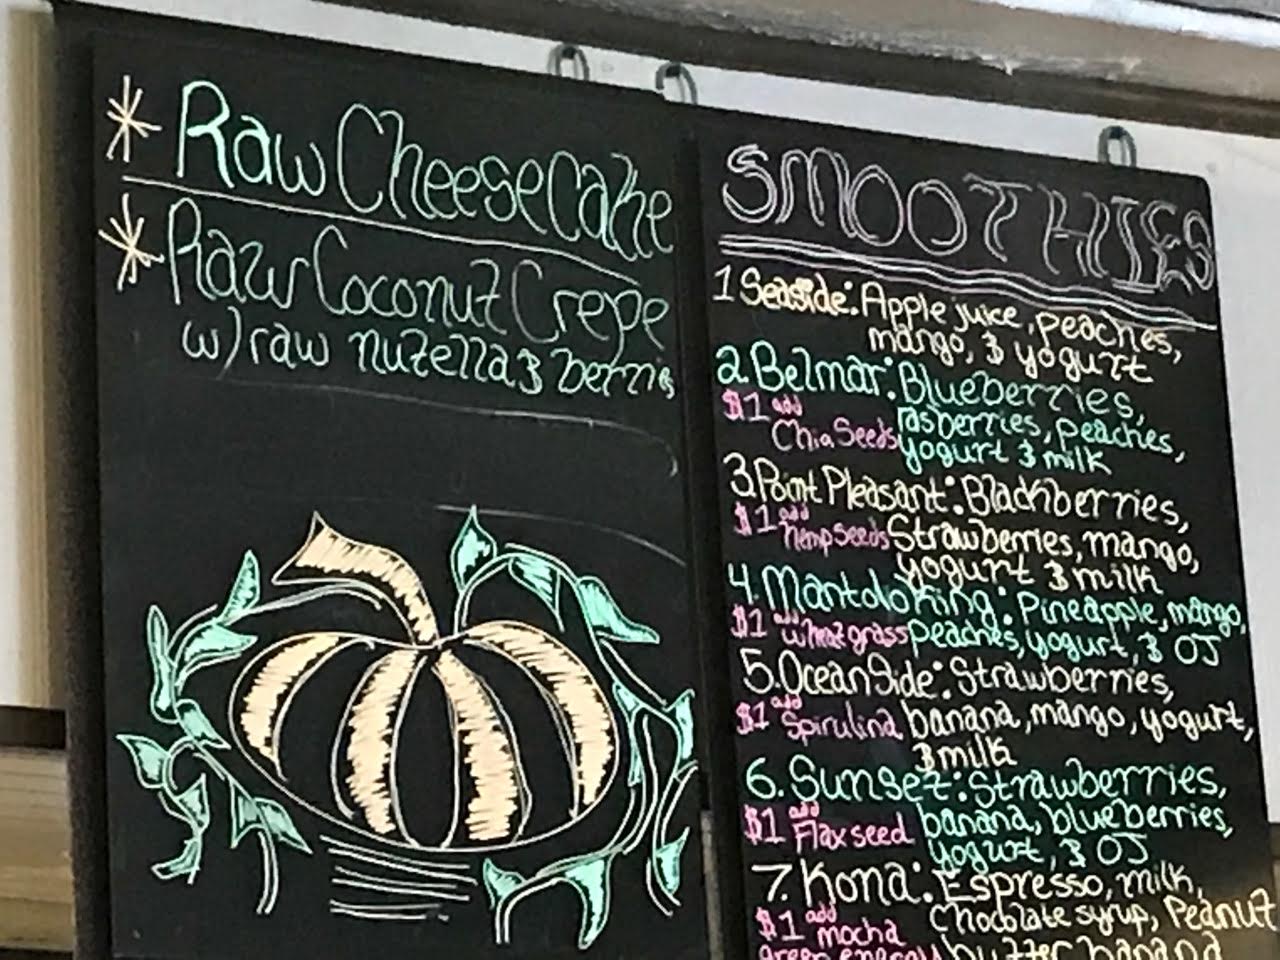 * Raw CheeseCake
* Raw Coconut Crepe
w/ raw nutella & berries
SMOOTHIES
1 Seaside: Apple juice, peaches,
mango, & yogurt
2. Belmar: Blueberries,
$1 add Chia Seeds
rasberries, peaches,
yogurt & milk
3. Point Pleasant: Blackberries,
$1 add hemp seeds
Strawberries, mango,
yogurt & milk
4. Mantoloking: Pineapple, mango,
$1 add wheat grass
peaches, yogurt, & OJ
5. OceanSide: Strawberries,
$1 add Spirulina
banana, mango, yogurt,
& milk
6. Sunset: Strawberries,
$1 add Flax seed
banana, blueberries,
yogurt, & OJ
7. Kona: Espresso, milk,
$1 add mocha
Chocolate syrup, Peanut
green energy
butter banana